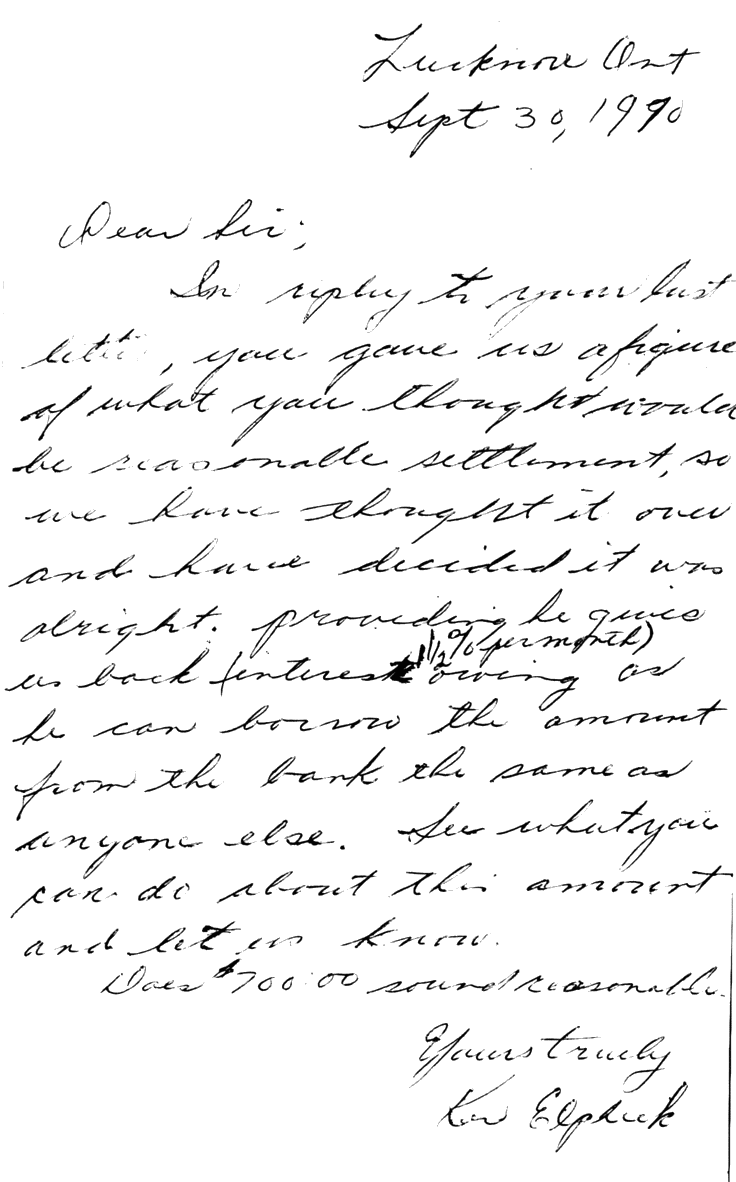 Lucknow Ont
Sept 30, 1990
Dear Sir;
In reply to your last
letter, you gave us a figure
of what you thought would
be reasonable settlement, so
we have thought it over
and have decided it was
alright. providing he gives
1 1/2 % per month)
us back (interest owing as
he can borrow the amount
from the bank the same as
anyone else. See what you
can do about this amount
and let us know.
Does $700.00 sound reasonable.
Yours truely
Ken Elphick